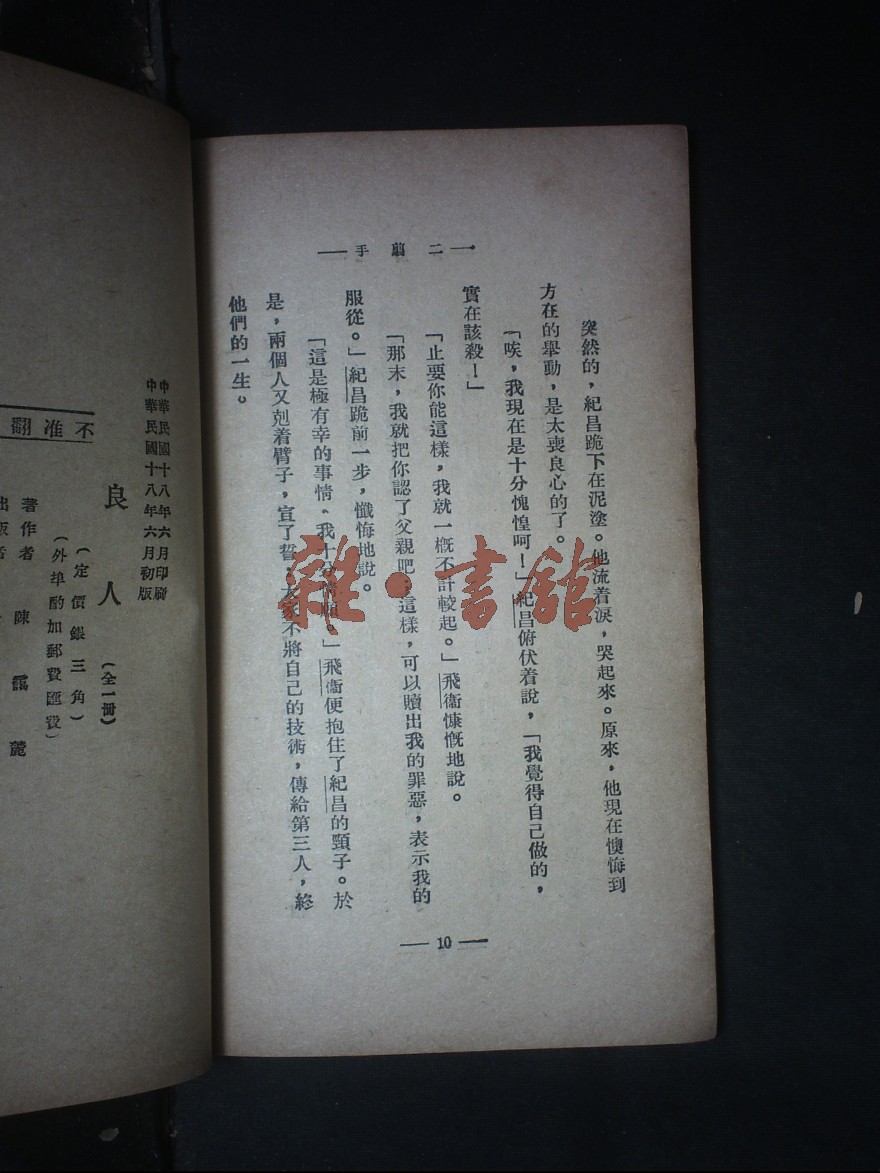 二鵰手
突然的，紀昌跪下在泥塗。他流着淚，哭起來。原來，他現在懊悔到
方在的舉動，是太喪良心的了。
「唉，我現在是十分愧惶呵！」紀昌俯伏着說，「我覺得自己做的，
實在該殺！」
「止要你能這樣，我就一概不計較起。」飛衞慷慨地說。
「那末，我就把你認了父親吧，這樣，可以贖出我的罪惡，表示我的
服從。」紀昌跪前一步，懺悔地說。
「這是極有幸的事情，我十分。」飛衞便抱住了紀昌的頸子。於
是，兩個人又剋着臂子，宣了誓：大家不將自己的技術，傳給第三人，終
他們的一生。
10
中華民國十八年六月印刷
中華民國十八年六月初版
不准翻
良人（全一冊）
（定價銀三角）
（外埠酌加郵費匯費）
著作者 陳靄麓
出版者
雜·書館